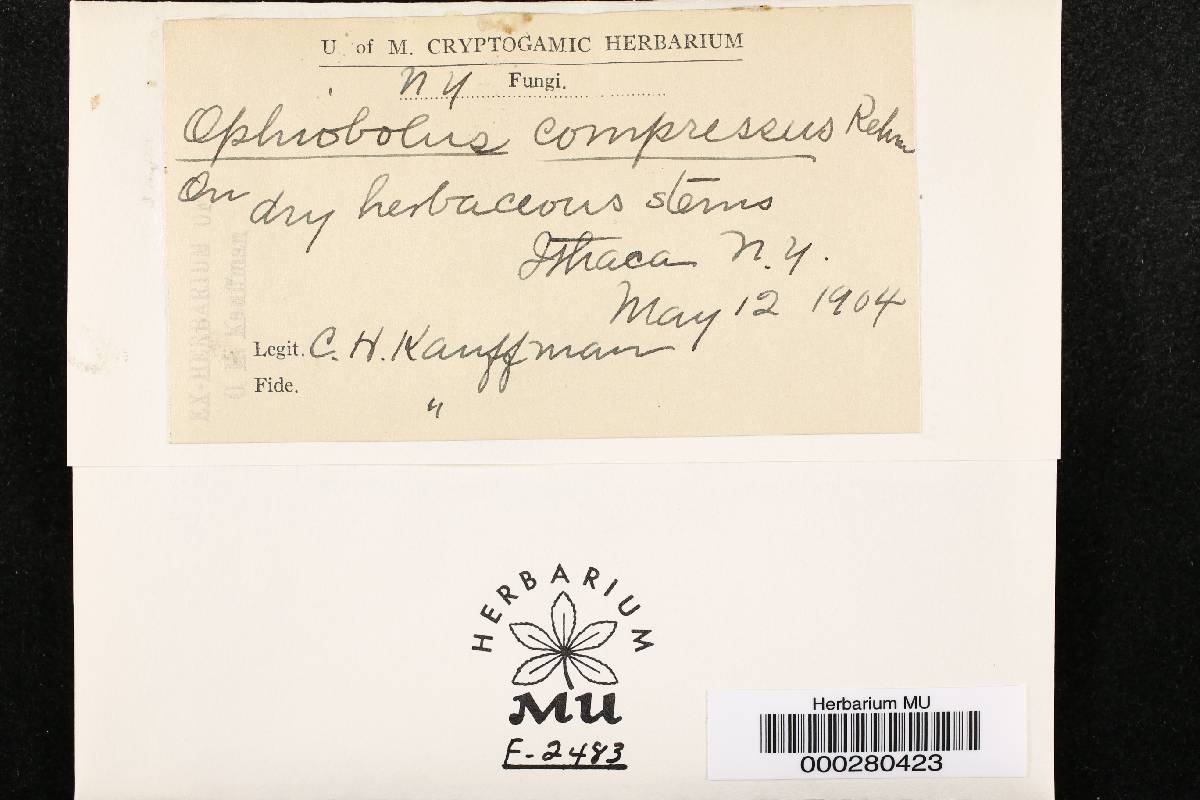 U. of M. CRYPTOGAMIC HERBARIUM
NY Fungi.
Ophiobolus compressus Rehm
On dry herbaceous stems
Ithaca N.Y.
May 12 1904
Legit. C. H. Kauffman
Fide. "
EX-HERBARIUM
HERBARIUM
MU
F-2483
Herbarium MU
000280423